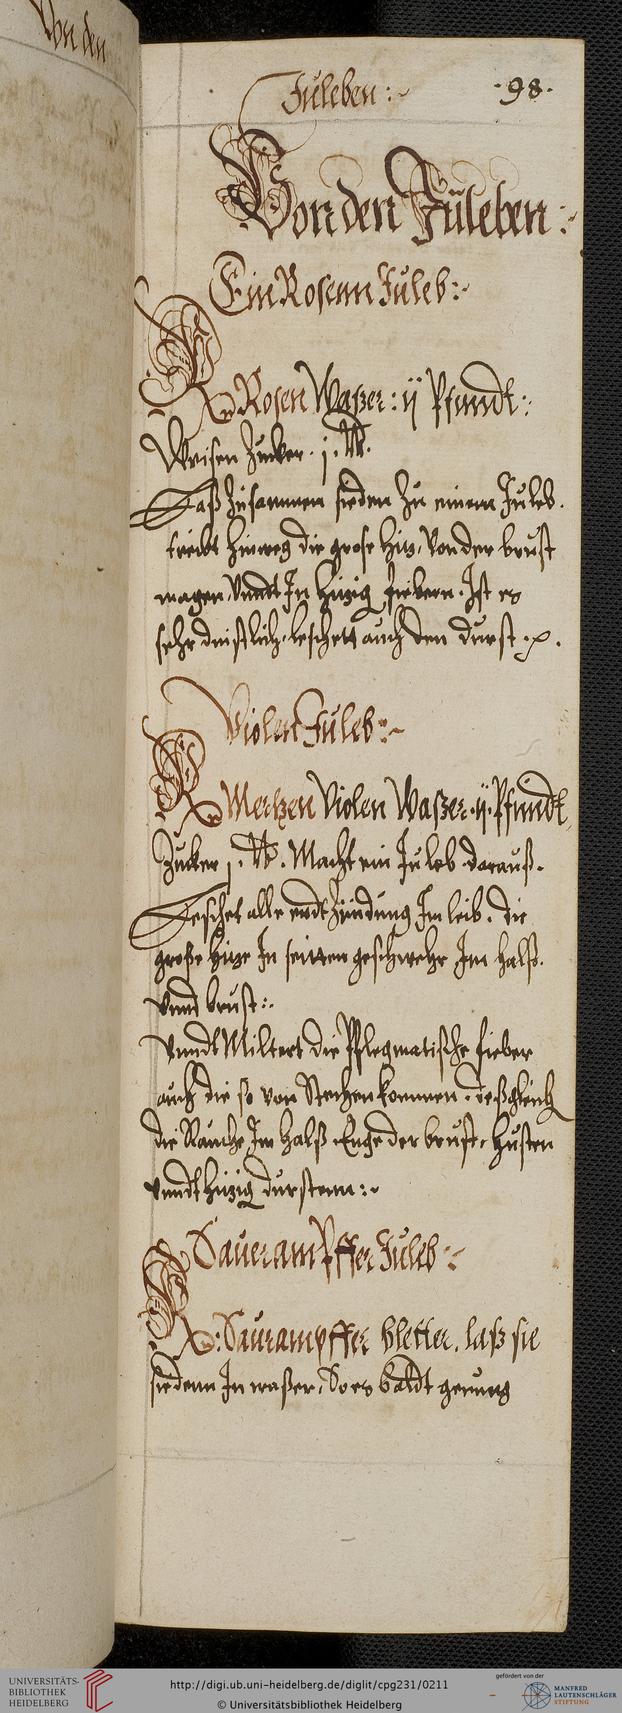 Von den
Juleben :~
·98·
Von den Juleben :~
Ein Rosenn Juleb :~
Rx Rosen Waßer : ij Pfundt :
Weisen Zucker . j . ℔.
Laß zusammen sieden zu einem Juleb .
treibt hinweg die grose hitz, von der brust
magen, vnndt In hitzig fiebern . Ist es
sehr dinstlich, leschett auch den durst .
Violen Juleb :~
Rx Mertzen Violen Waßer . ij . Pfundt
Zucker j . ℔ . Macht ein Juleb darauß .
Leschet alle endtzündung Im leib . die
große hitze In seitten geschwehr Im halß .
vnnd brust :.
Vnndt Miltert die Pflegmatische fieber
auch die so von Stechen kommen . deßgleich
die Rauche Im halß Enge der brust, husten
vnndt hitzig durstenn :~
Sauerampffer Juleb :~
Rx : Saurampffer bletter . laß sie
siedenn In waßer, So es baldt genung
UNIVERSITÄTS-
BIBLIOTHEK
HEIDELBERG
http://digi.ub.uni-heidelberg.de/diglit/cpg231/0211
© Universitätsbibliothek Heidelberg
gefördert von der
MANFRED
LAUTENSCHLÄGER
STIFTUNG